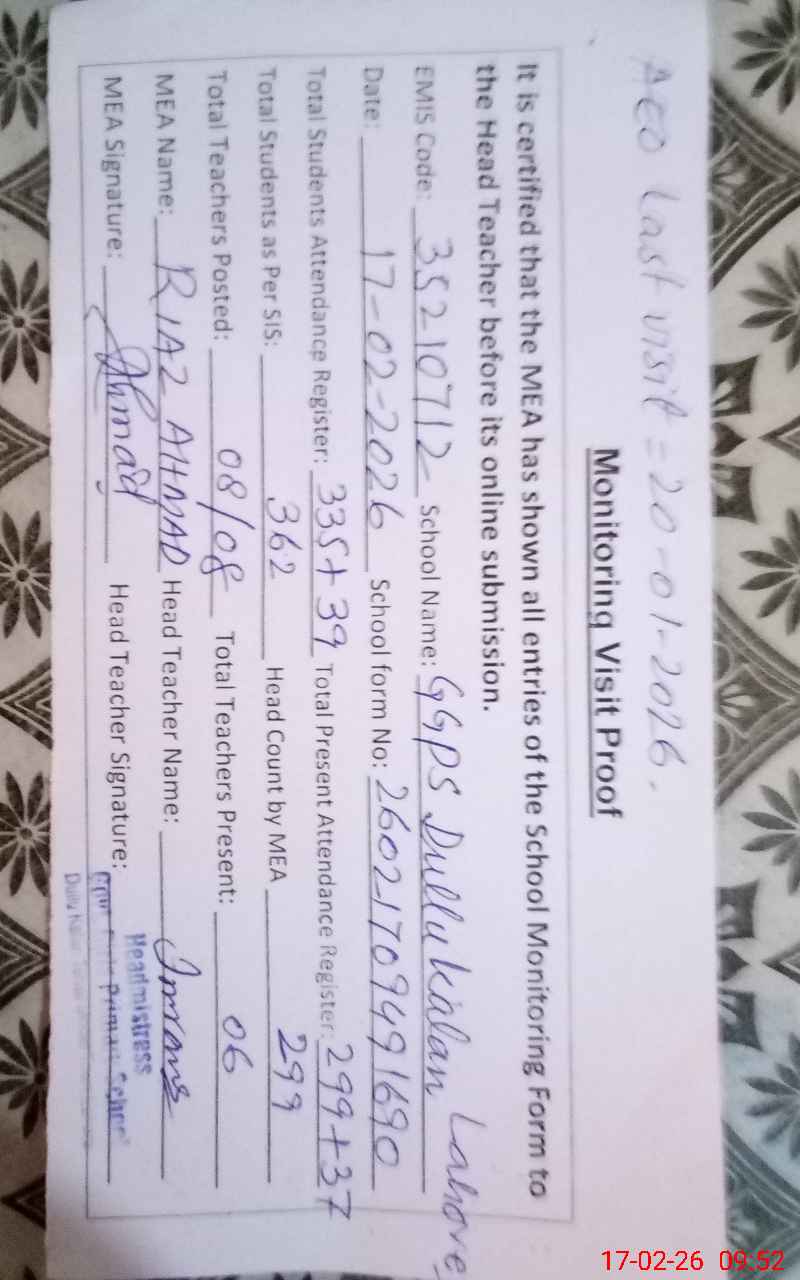 AEO Last visit = 20-01-2026.
Monitoring Visit Proof
It is certified that the MEA has shown all entries of the School Monitoring Form to
the Head Teacher before its online submission.
EMIS Code: 35210712 School Name: GGPS Dullu kalan Lahore
Date: 17-02-2026 School form No: 26021709491690
Total Students Attendance Register: 335+39 Total Present Attendance Register: 299+37
Total Students as Per SIS: 362 Head Count by MEA 299
Total Teachers Posted: 08/08 Total Teachers Present: 06
MEA Name: RIAZ AHMAD Head Teacher Name:
MEA Signature: Ahmad Head Teacher Signature:
Headmistress
Primary School
Dullu Kalan
17-02-26 09:52